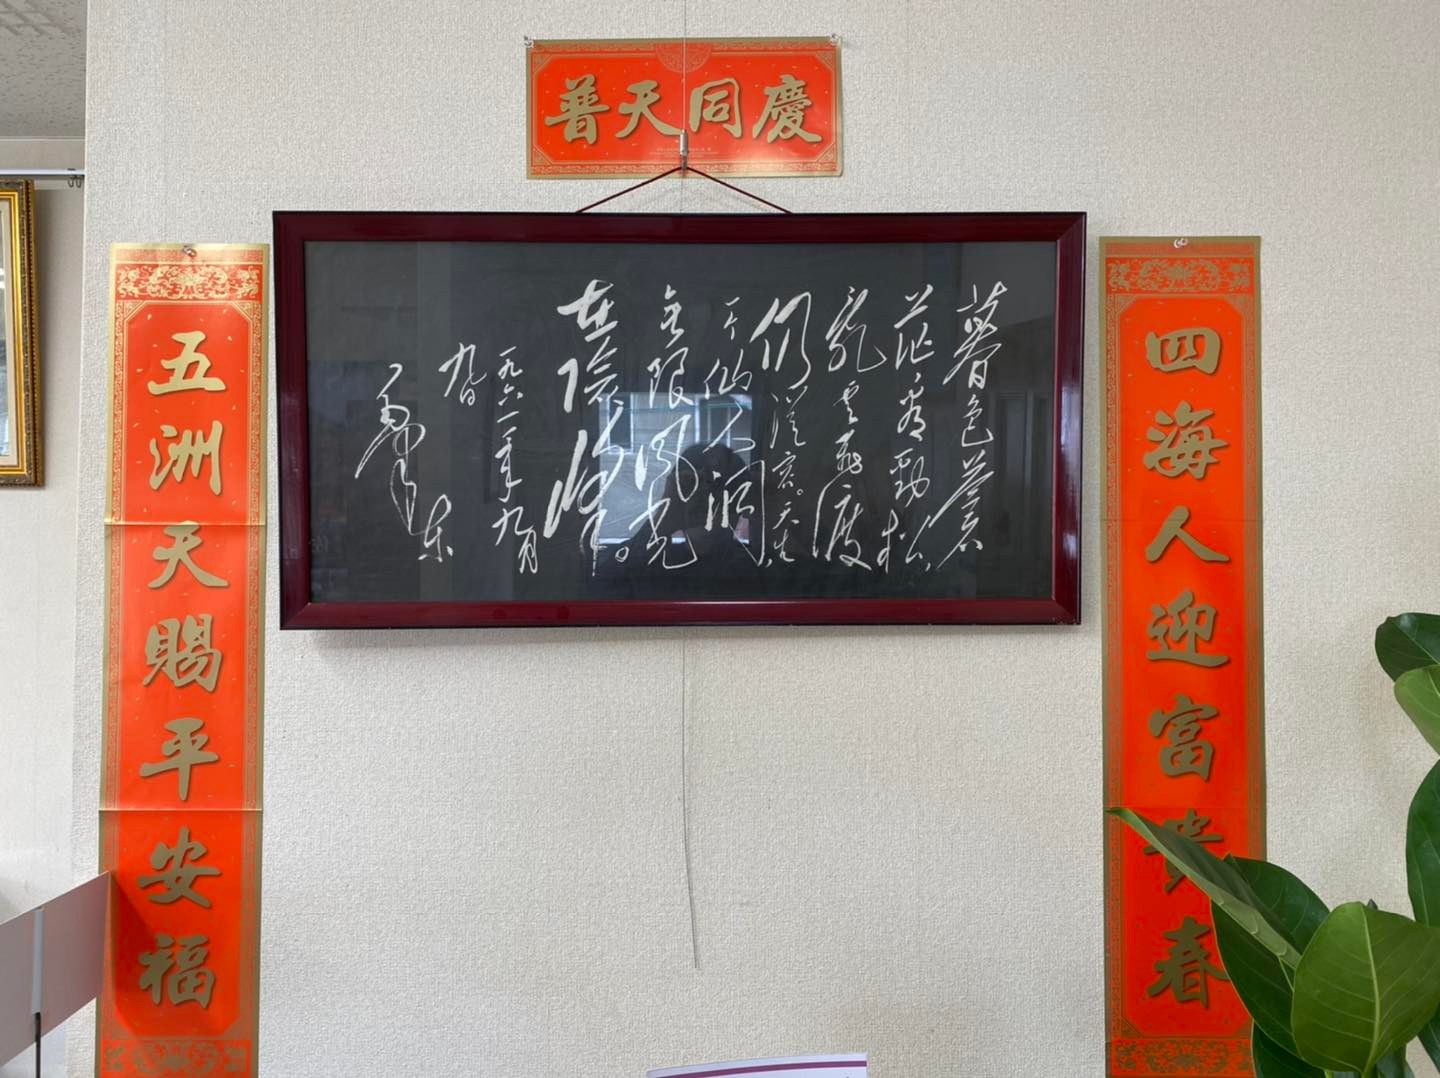 普天同慶
四海人迎富貴春
暮色蒼
茫看勁松
乱云飞渡
仍從容。天生
一个仙人洞
无限風光
在險峰。
一九六一年九月
九日
毛泽东
五洲天賜平安福